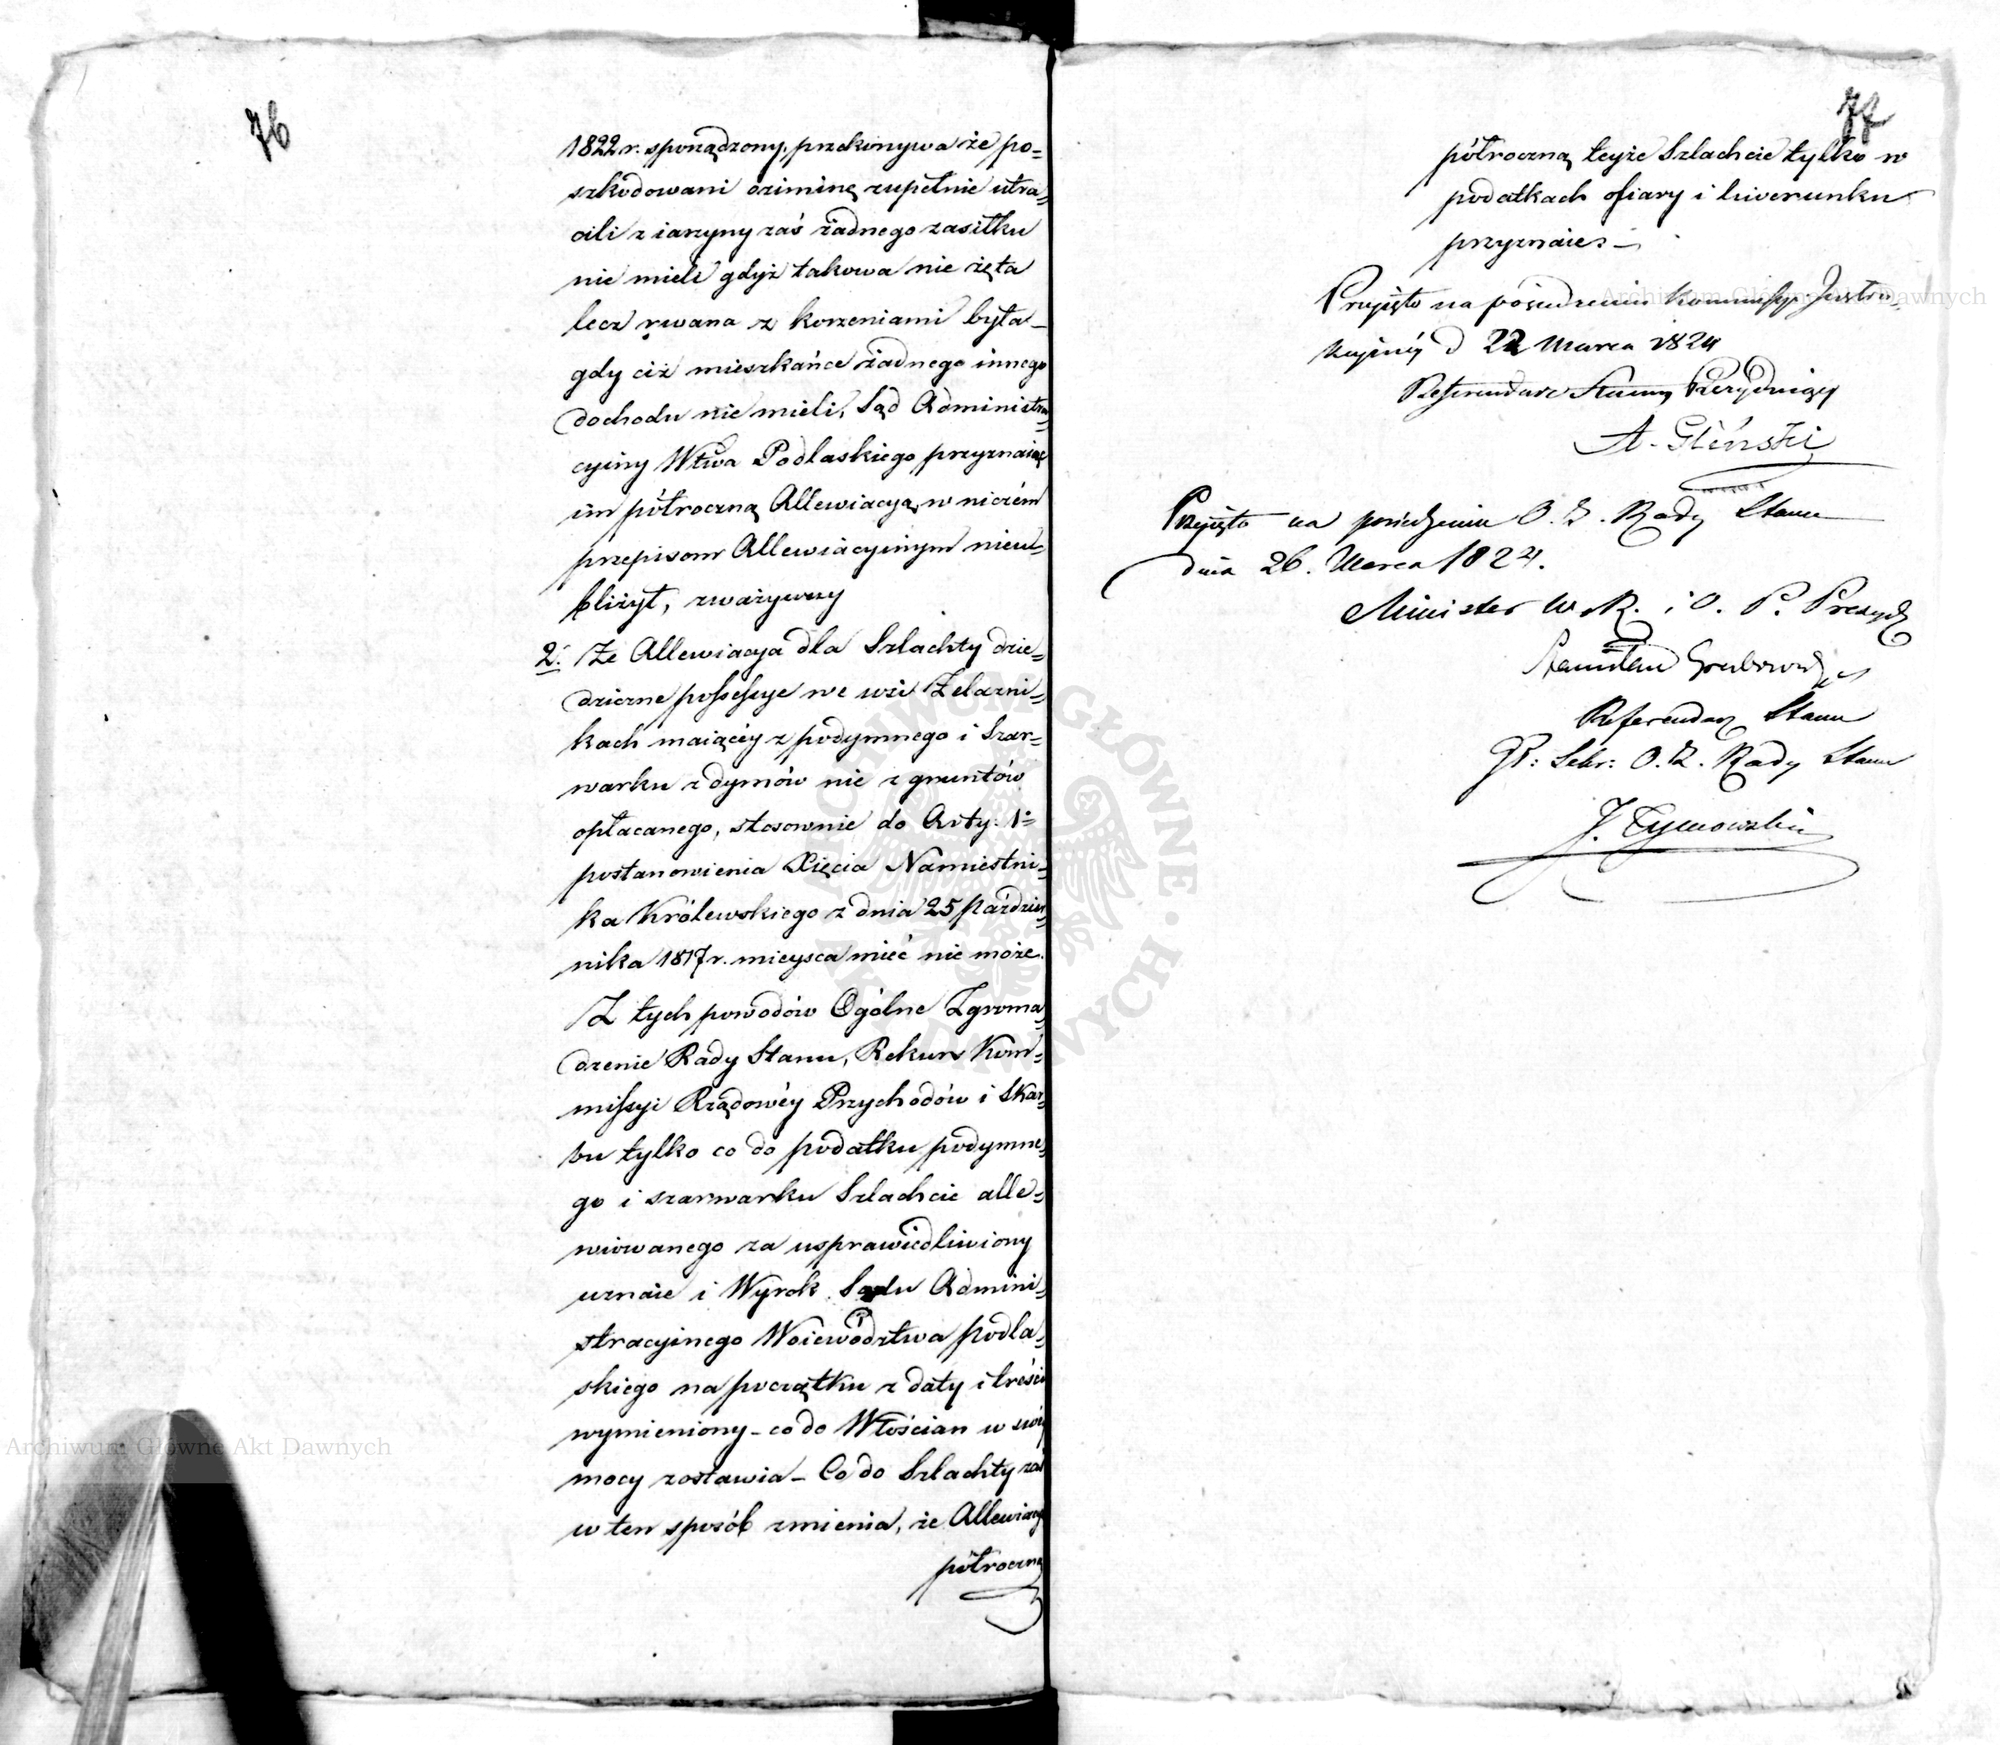 76
1822 r. sporządzony, przekonywa że po=
szkodowani oziminę zupełnie utra=
cili z iarzyny zaś żadnego zasiłku
nie mieli gdyż takowa nie żęta
lecz rwana z korzeniami była_
gdy ciż mieszkańce żadnego innego
dochodu nie mieli, Sąd Administra=
cyiny Wtwa Podlaskiego przyznaiąc
im półroczną Allewiacyą, w niczém
przepisom Allewiacyinym nieu=
bliżył, zważywszy
2. Że Allewiacya dla Szlachty dzie=
dziczne possessye we wsi Żelazni=
kach maiącéy z podymnego i Szar=
warku z dymów nie z gruntów
opłacanego, stosownie do Arty. 1º
postanowienia Xięcia Namiestni=
ka Królewskiego z dnia 25 Paździer=
nika 1817 r. mieysca mieć nie może.
Z tych powodów Ogólne Zgroma=
dzenie Rady Stanu, Rekurs Kom=
missyi Rządowéy Przychodów i Skar=
bu tylko co do podatku podymne=
go i szarwarku Szlachcie alle=
wiowanego za usprawiedliwiony
uznaie i Wyrok Sądu Admini=
stracyinego Woiewództwa Podla=
skiego na początku z daty i treści
wymieniony _ co do Włościan w swéy
mocy zostawia _ Co do Szlachty zaś
w ten sposób zmienia, że Allewiacyę
półroczną
77
półroczną teyże Szlachcie tylko w
podatkach ofiary i liwerunku
przyznaie. _
Przyięto na posiedzeniu Kommissyi Instru=
kcyinéy d 22 Marca 1824
Referendarz Stanu Prezyduiący
A. Gliński
Przyięto na posiedzeniu O. Z. Rady Stanu
dnia 26. Marca 1824.
Minister W. R. i O. P. Prezyd
Stanisław Grabowski
Referendarz Stanu
Pł: Sekr: O. Z. Rady Stanu
J. Tymowski
Archiwum Główne Akt Dawnych
Archiwum Główne Akt Dawnych
ARCHIWUM GŁÓWNE AKT DAWNYCH